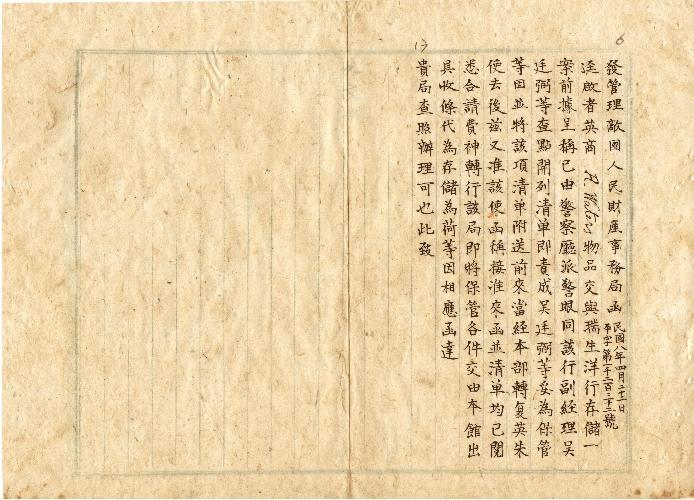 6
發管理敵國人民財產事務局函
民國八年四月二十二日
逕啟者英商物品交與瑞生洋行存儲一
案前據呈稱已由警察廳派警眼同該行副經理吳
廷弼等查點開列清单即責成吳廷弼等妥為保管
等因並將該項清单附送前來當經本部轉复英朱
使去後茲又准該使函稱接准來函並清单均已閱
悉合請費神轉行該局即將保管各件交由本館出
具收條代為存儲為荷等因相應函達
貴局查照辦理可也此致